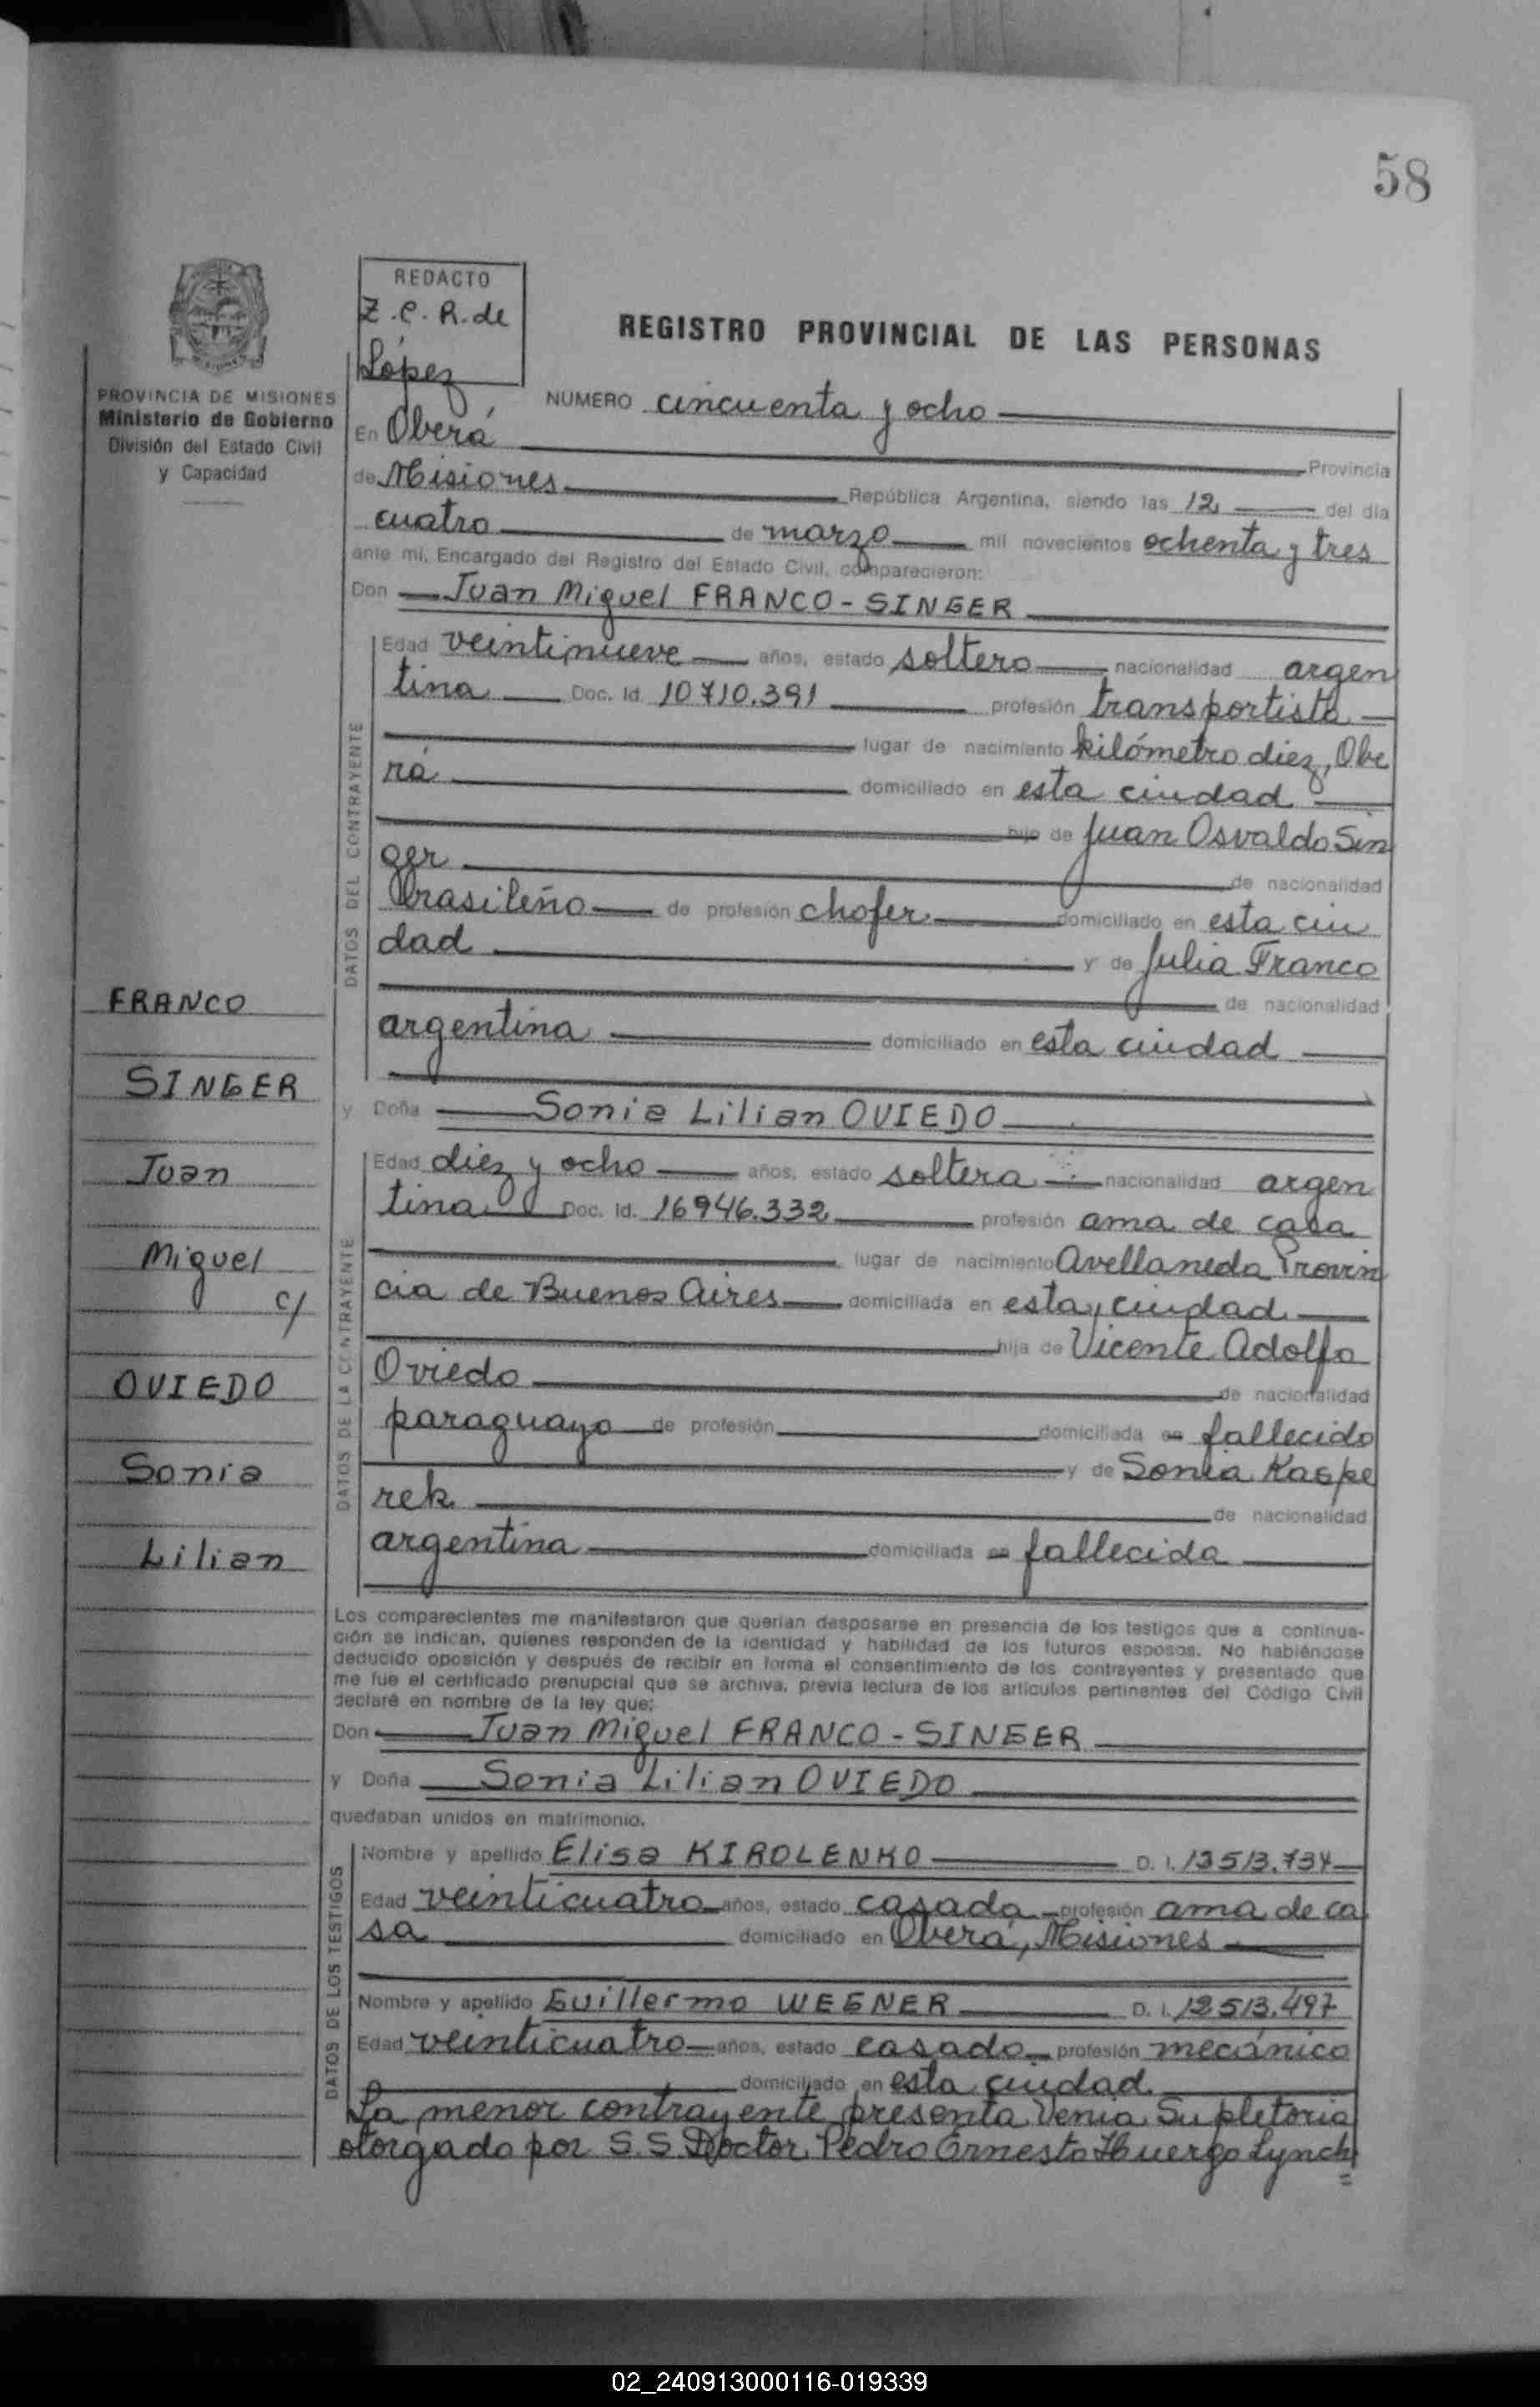 58
REDACTO
Z.C.R. de
López
REGISTRO PROVINCIAL DE LAS PERSONAS
PROVINCIA DE MISIONES
Ministerio de Gobierno
División del Estado Civil
y Capacidad
NUMERO cincuenta y ocho
En Oberá Provincia
de Misiones República Argentina, siendo las 12 del día
cuatro de marzo mil novecientos ochenta y tres
ante mí, Encargado del Registro del Estado Civil, comparecieron:
Don Juan Miguel FRANCO-SINGER
DATOS DEL CONTRAYENTE
Edad veintinueve años, estado soltero nacionalidad argen
tina Doc. Id. 10710.391 profesión transportista
lugar de nacimiento kilómetro diez, Obe
rá domiciliado en esta ciudad
hijo de Juan Osvaldo Sin
ger de nacionalidad
brasileño de profesión chofer domiciliado en esta ciu
dad y de Julia Franco
de nacionalidad
argentina domiciliado en esta ciudad
y Doña Sonia Lilian OVIEDO
DATOS DE LA CONTRAYENTE
Edad diez y ocho años, estado soltera nacionalidad argen
tina Doc. Id. 16946.332 profesión ama de casa
lugar de nacimiento Avellaneda Provin
cia de Buenos Aires domiciliada en esta ciudad
hija de Vicente Adolfo
Oviedo de nacionalidad
paraguayo de profesión domiciliada en fallecido
y de Sonia Kaspe
rek de nacionalidad
argentina domiciliada en fallecida
FRANCO
SINGER
Juan
Miguel
c/
OVIEDO
Sonia
Lilian
Los comparecientes me manifestaron que querían desposarse en presencia de los testigos que a continua-
ción se indican, quienes responden de la identidad y habilidad de los futuros esposos. No habiéndose
deducido oposición y después de recibir en forma el consentimiento de los contrayentes y presentado que
me fue el certificado prenupcial que se archiva, previa lectura de los artículos pertinentes del Código Civil
declaré en nombre de la ley que:
Don Juan Miguel FRANCO-SINGER
y Doña Sonia Lilian OVIEDO
quedaban unidos en matrimonio.
DATOS DE LOS TESTIGOS
Nombre y apellido Elisa KIROLENKO D. I. 13513.734
Edad veinticuatro años, estado casada profesión ama de ca
sa domiciliado en Oberá, Misiones
Nombre y apellido Guillermo WEGNER D. I. 12513.497
Edad veinticuatro años, estado casado profesión mecánico
domiciliado en esta ciudad
La menor contrayente presenta Venia Supletoria
otorgado por S.S. Doctor Pedro Ernesto Huergo Lynch
02_240913000116-019339